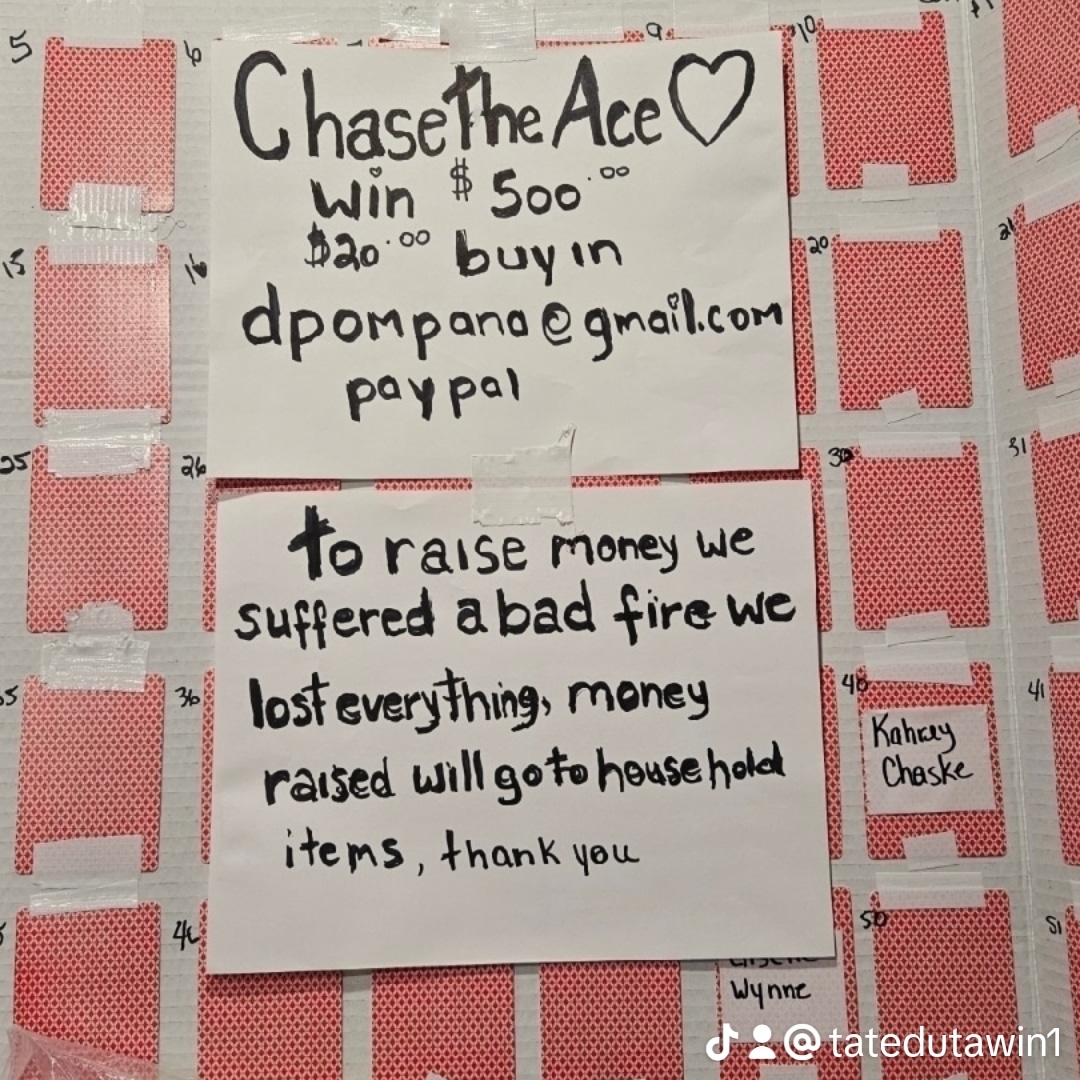 5
6
9
10
Chase The Ace
win $500.00
$20.00 buy in
dpompano@gmail.com
paypal
15
16
20
21
25
26
30
31
to raise money we
suffered a bad fire we
lost everything, money
raised will go to household
items, thank you
35
36
40
41
Kahrey
Chaske
50
51
Wynne
@tatedutawin1